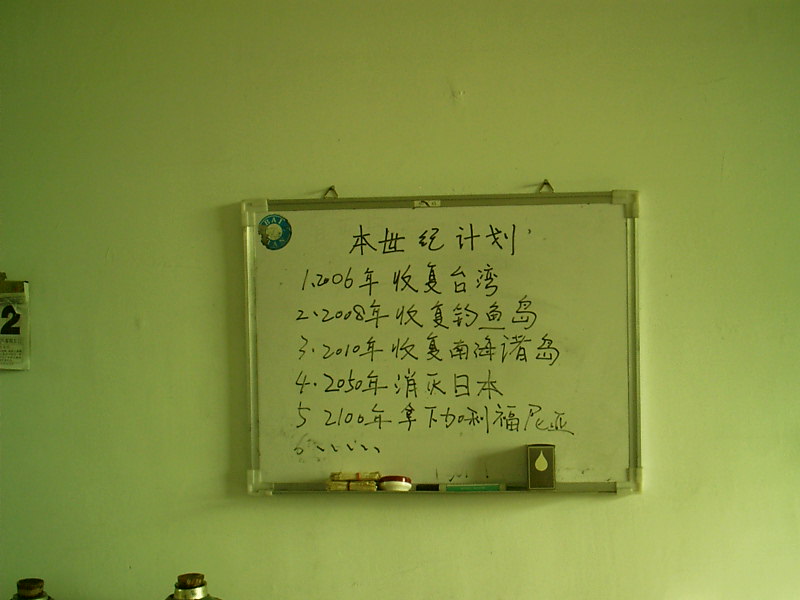 本世纪计划
1.2006年 收复台湾
2.2008年 收复钓鱼岛
3.2010年 收复南海诸岛
4.2050年 消灭日本
5 2100年 拿下加利福尼亚
6......
2